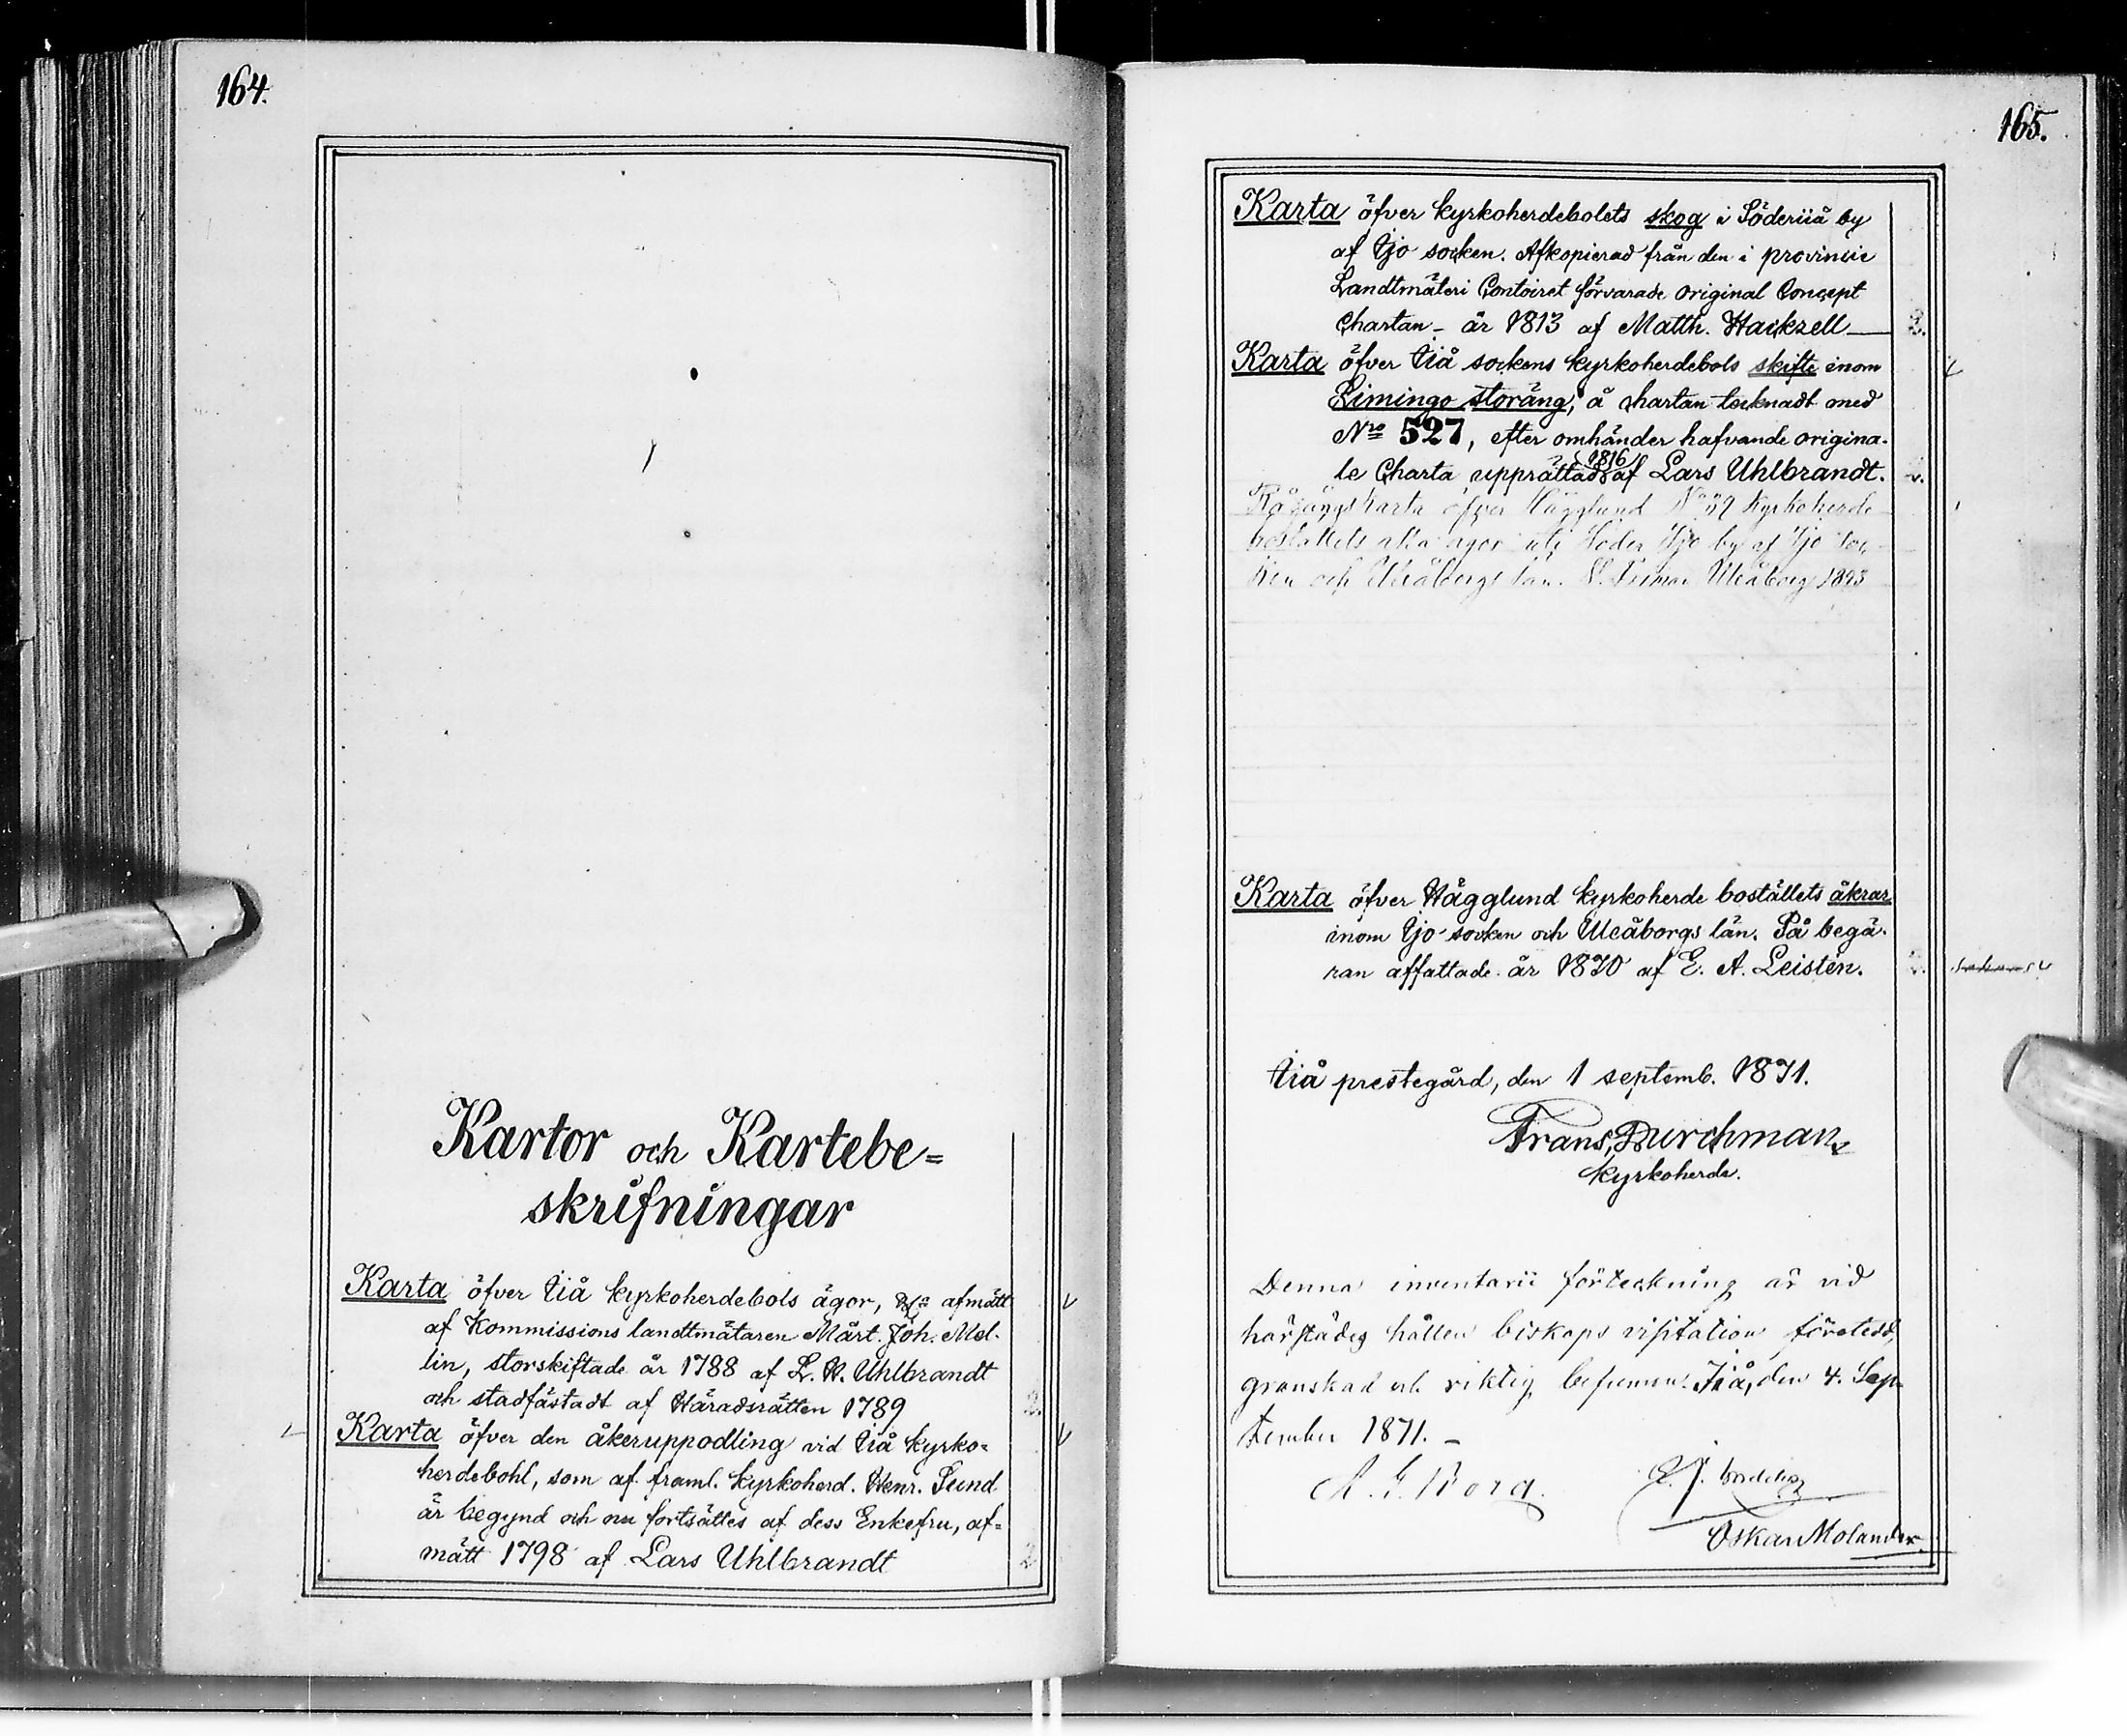 164.
Kartor och Kartebe=
skrifningar
Karta öfver Iiå kyrkoherdebols ägor, afmätt
af Kommissions landtmätaren Mårt. Joh. Mel-
lin, storskiftade år 1788 af L. H. Uhlbrandt
och stadfästadt af Häradsrätten 1789
2.
Karta öfver den åkeruppodling vid Iiå kyrko=
herdebohl, som af framl. kyrkoherd. Henr. Lund
är begynd och nu fortsättes af dess Enkefru, af=
mätt 1798 af Lars Uhlbrandt
2
165.
Karta öfver kyrkoherdebolets skog i Söderiiå by
af Ijo socken. Afkopierad från den i provincie
Landtmäteri Contoiret förvarade original Concept
Chartan – år 1813 af Matth. Hackzell — 2.
Karta öfver Iiå sockens kyrkoherdebols skifte inom
Limingo storäng, å chartan tecknadt med
Nro 527, efter omhänder hafvande origina-
le Charta upprättad 1816 af Lars Uhlbrandt. 2.
Rågångskarta öfver Hägglund No 39 Kyrkoherde
boställets alla egor uti Söder Ijo by af Ijo soc
ken och Uleåborgs län. Uleåborg 1893
Karta öfver Hägglund kyrkoherde boställets åkrar
inom Ijo socken och Uleåborgs län. På begä-
ran affattade år 1870 af E. A. Leistén. 2.
Iiå prestegård, den 1 septemb. 1871.
Frans Durchman
kyrkoherde.
Denna inventarii förteckning är vid
härstädes hållen biskops visitation företedd,
granskad och riktig befunnen. Iiå, den 4. Sep-
tember 1871. –
A. G. Borg.
Oskar Molander.